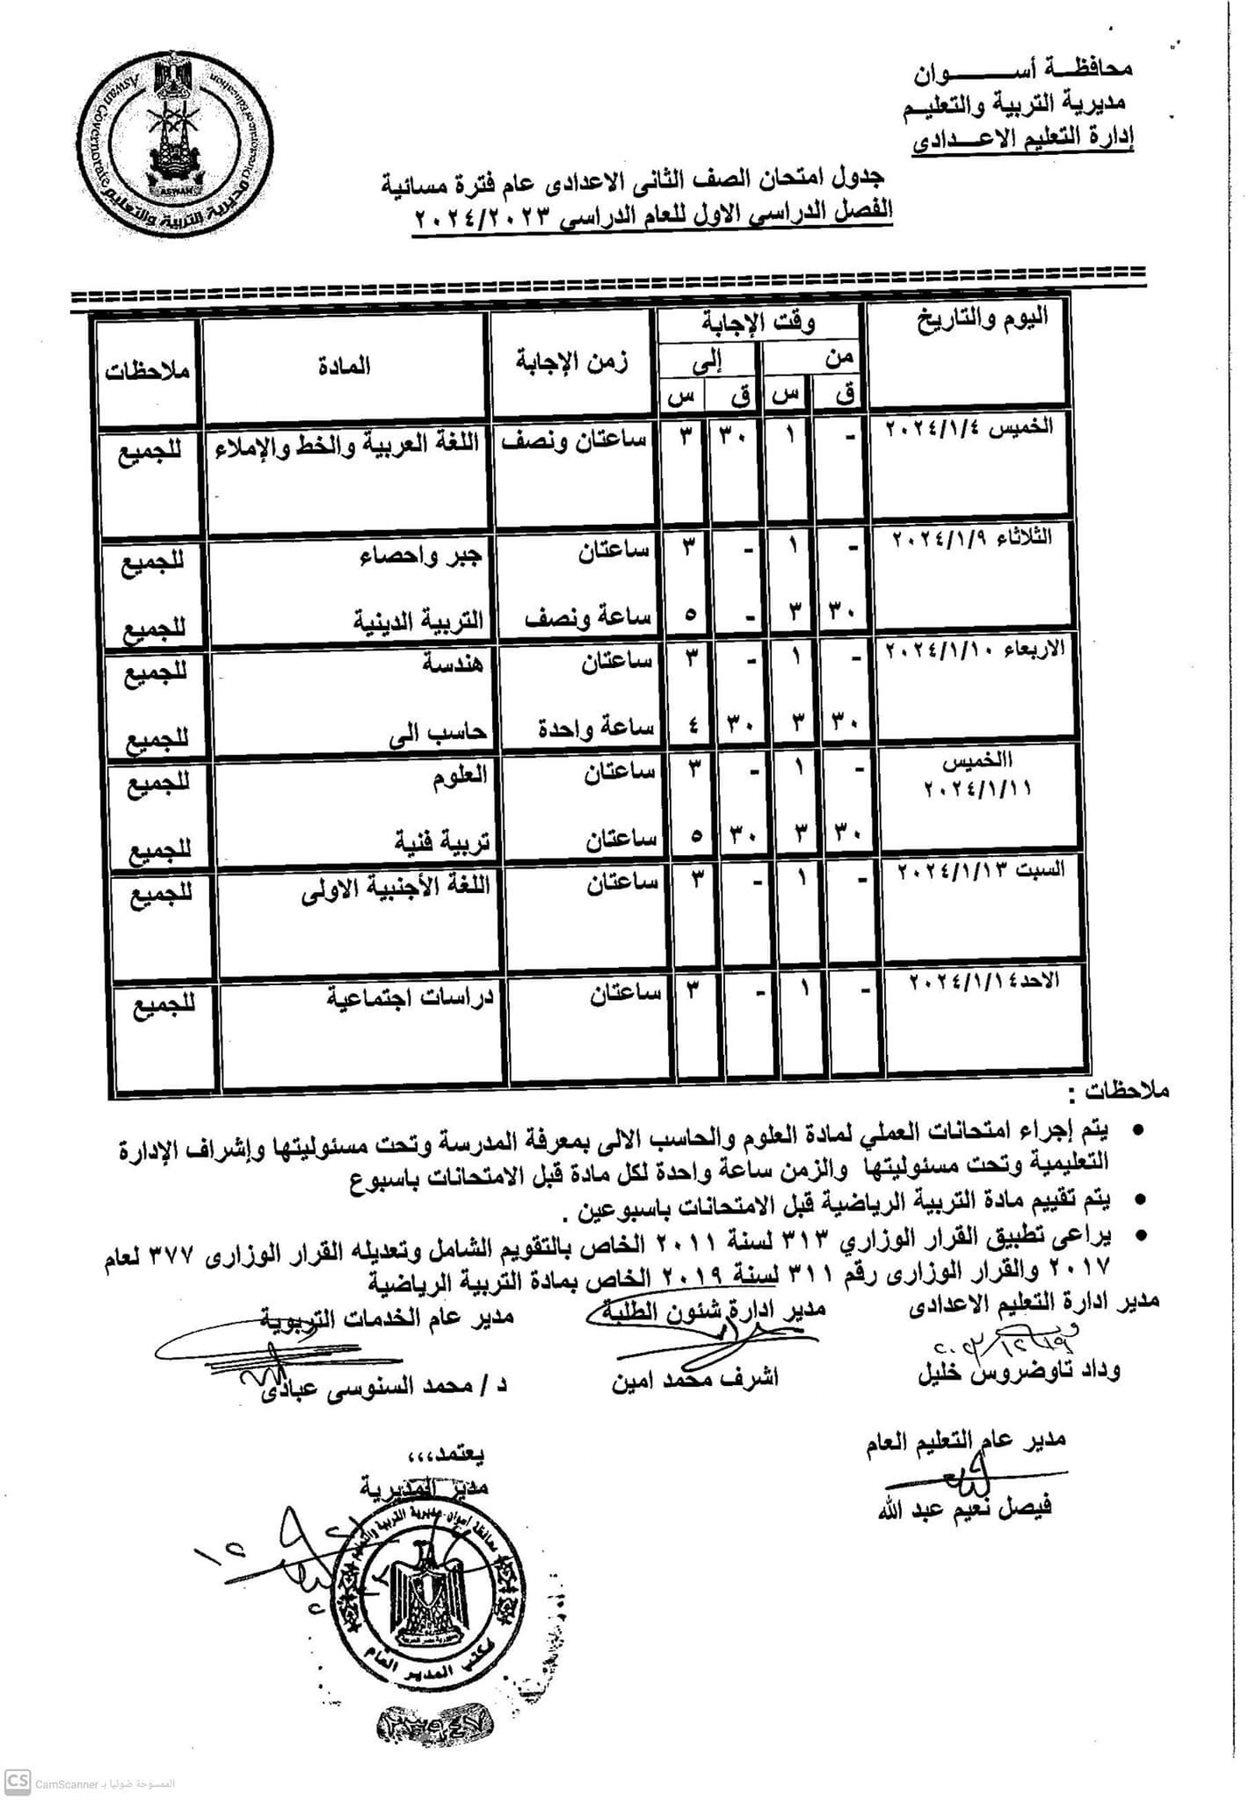 محافظة أسوان
مديرية التربية والتعليم
إدارة التعليم الاعدادى
Aswan Governorate Directorate of Education
مديرية التربية والتعليم
ASWAN
جدول امتحان الصف الثانى الاعدادى عام فترة مسائية
الفصل الدراسي الاول للعام الدراسي ٢٠٢٤/٢٠٢٣
اليوم والتاريخ وقت الإجابة زمن الإجابة المادة ملاحظات
من إلى
ق س ق س
الخميس ٢٠٢٤/١/٤ - ١ ٣٠ ٣ ساعتان ونصف اللغة العربية والخط والإملاء للجميع
الثلاثاء ٢٠٢٤/١/٩ - ١ - ٣ ساعتان جبر واحصاء للجميع
٣٠ ٣ - ٥ ساعة ونصف التربية الدينية للجميع
الاربعاء ٢٠٢٤/١/١٠ - ١ - ٣ ساعتان هندسة للجميع
٣٠ ٣ ٣٠ ٤ ساعة واحدة حاسب الى للجميع
االخميس ٢٠٢٤/١/١١ - ١ - ٣ ساعتان العلوم للجميع
٣٠ ٣ ٣٠ ٥ ساعتان تربية فنية للجميع
السبت ٢٠٢٤/١/١٣ - ١ - ٣ ساعتان اللغة الأجنبية الاولى للجميع
الاحد٢٠٢٤/١/١٤ - ١ - ٣ ساعتان دراسات اجتماعية للجميع
ملاحظات :
• يتم إجراء امتحانات العملي لمادة العلوم والحاسب الالى بمعرفة المدرسة وتحت مسئوليتها وإشراف الإدارة
التعليمية وتحت مسئوليتها والزمن ساعة واحدة لكل مادة قبل الامتحانات باسبوع
• يتم تقييم مادة التربية الرياضية قبل الامتحانات باسبوعين .
• يراعى تطبيق القرار الوزاري ٣١٣ لسنة ٢٠١١ الخاص بالتقويم الشامل وتعديله القرار الوزارى ٣٧٧ لعام
٢٠١٧ والقرار الوزارى رقم ٣١١ لسنة ٢٠١٩ الخاص بمادة التربية الرياضية
مدير ادارة التعليم الاعدادى مدير ادارة شئون الطلبة مدير عام الخدمات التربوية
وداد تاوضروس خليل اشرف محمد امين د / محمد السنوسى عبادى
مدير عام التعليم العام
فيصل نعيم عبد الله
يعتمد،،،
مدير المديرية
محافظة أسوان-مديرية التربية والتعليم
جمهورية مصر العربية
مكتب المدير العام
CS CamScanner الممسوحة ضوئيا بـ